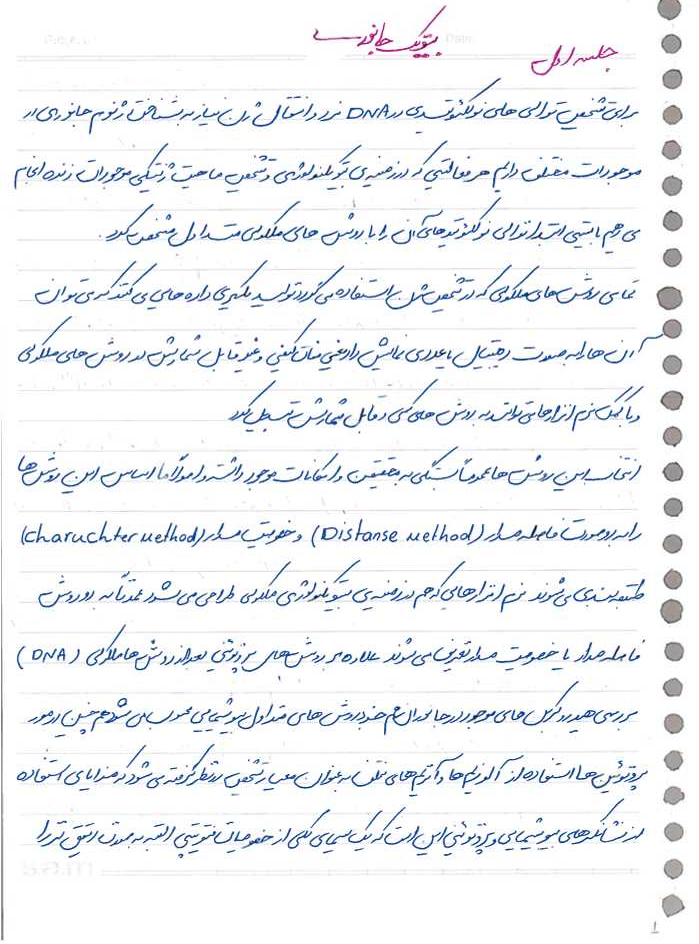 بیوتیک جانوری
جلسه اول
برای تشخیص توالی های نوکلئوتیدی در DNA نر و انتقال ژن نیاز به شناخت ژنوم جانوری در
موجودات مختلف داریم هر فعالیتی که در زمینه ی بیوتکنولوژی و تشخیص ماهیت ژنتیکی موجودات زنده انجام
می دهیم بایستی ابتدا توالی نوکلئوتیدهای آن را با روش های ملکولی متداول مشخص کرد.
تمامی روش های ملکولی که در تشخیص ژن استفاده می گردد تولید یکسری داده هایی می کنند که می توان
آن ها را به صورت دیجیتال یا عددی نمایش داد یعنی صفات کیفی و غیر قابل شمارش در روش های ملکولی
و با کمک نرم افزارها می توانند به روش های کمی و قابل شمارش تبدیل گردد
انتخاب این روش ها عموماً بستگی به محققین و امکانات موجود داشته و اصولاً اساس این روش ها
را به دو صورت فاصله مدار (Distanse method) و خصوصیت مدار (charuchter method)
طبقه بندی می شوند نرم افزارهایی که هم در زمینه ی بیوتکنولوژی ملکولی طراحی می شود عمدتاً به دو روش
فاصله مدار یا خصوصیت مدار تعریف می شوند علاوه بر روش های پروتئینی بعد از روش ها ملکولی (DNA)
بررسی هیدروکربن های موجود در جانوران هم جزء روش های متداول بیوشیمیایی محسوب می شود همچنین در مورد
پروتوئین ها استفاده از آلوزیم ها و آنزیم های مختلف به عنوان معیار تشخیص در نظر گرفته می شود که مزایای استفاده
از نشانگرهای بیوشیمیایی و پروتوئینی این است که یک سیمای کلی از خصوصیات فنوتیپی البته به صورت دقیق تر را
1